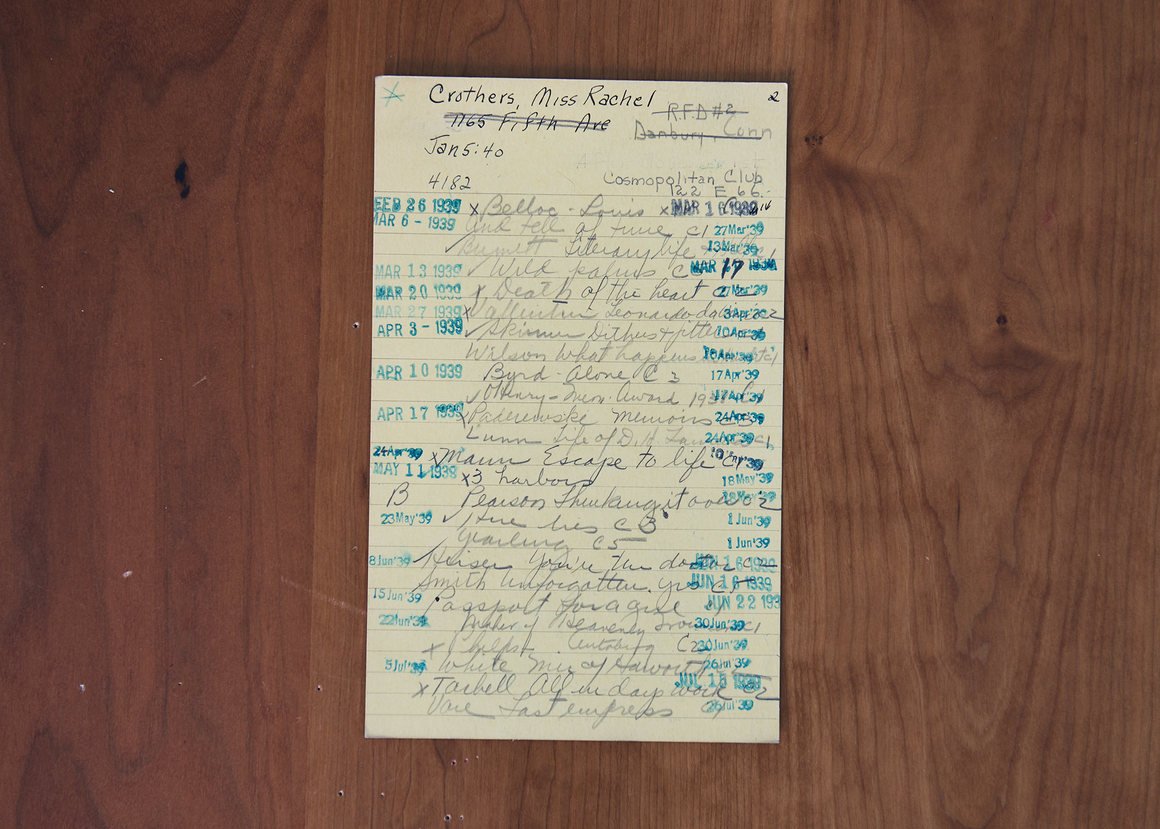 Crothers, Miss Rachel 2
1165 Fifth Ave R.F.D #2
Danbury, Conn
Jan 5:40
Cosmopolitan Club
4182 122 E 66
FEB 26 1939 x Belloc - Louis x MAR 16 1939
MAR 6 - 1939 and tell of time C1 27Mar'39
Burnett Literary life 13Mar'39
MAR 13 1939 ✓ Wild palms C MAR 17 1939
MAR 20 1939 x Death of the heart C2 27Mar'39
MAR 27 1939 x Vallentin Leonardo da 3Apr'39
APR 3 - 1939 ✓ Skinner Dithers + 10Apr'39
Wilson What happens
APR 10 1939 Byrd - Alone C3 17Apr'39
✓ OHenry - Mem. Award 193 17Apr'39
APR 17 1939 x Paderewski Memoirs 24Apr'39
Life of D. H. 24Apr'39
24Apr'39 x Mann Escape to life C1
MAY 11 1939 x 3 harbors 18May'39
B Pearson Thinking it over 18May'39
23May'39 ✓ Here lies C 1Jun'39
Yearling C5 1Jun'39
8Jun'39 Heiser You're the JUN 16 1939
Smith Unforgotten yrs C JUN 16 1939
15Jun'39 Passport for a girl JUN 22 193
22Jun'39 Maker of Heavenly 30Jun'39
x Phelps Autobiog C2 30Jun'39
5Jul'39 White Mu of Haworth 26Jul'39
x Tarbell All in days work C2 JUL 10 1939
Last empress C1 26Jul'39